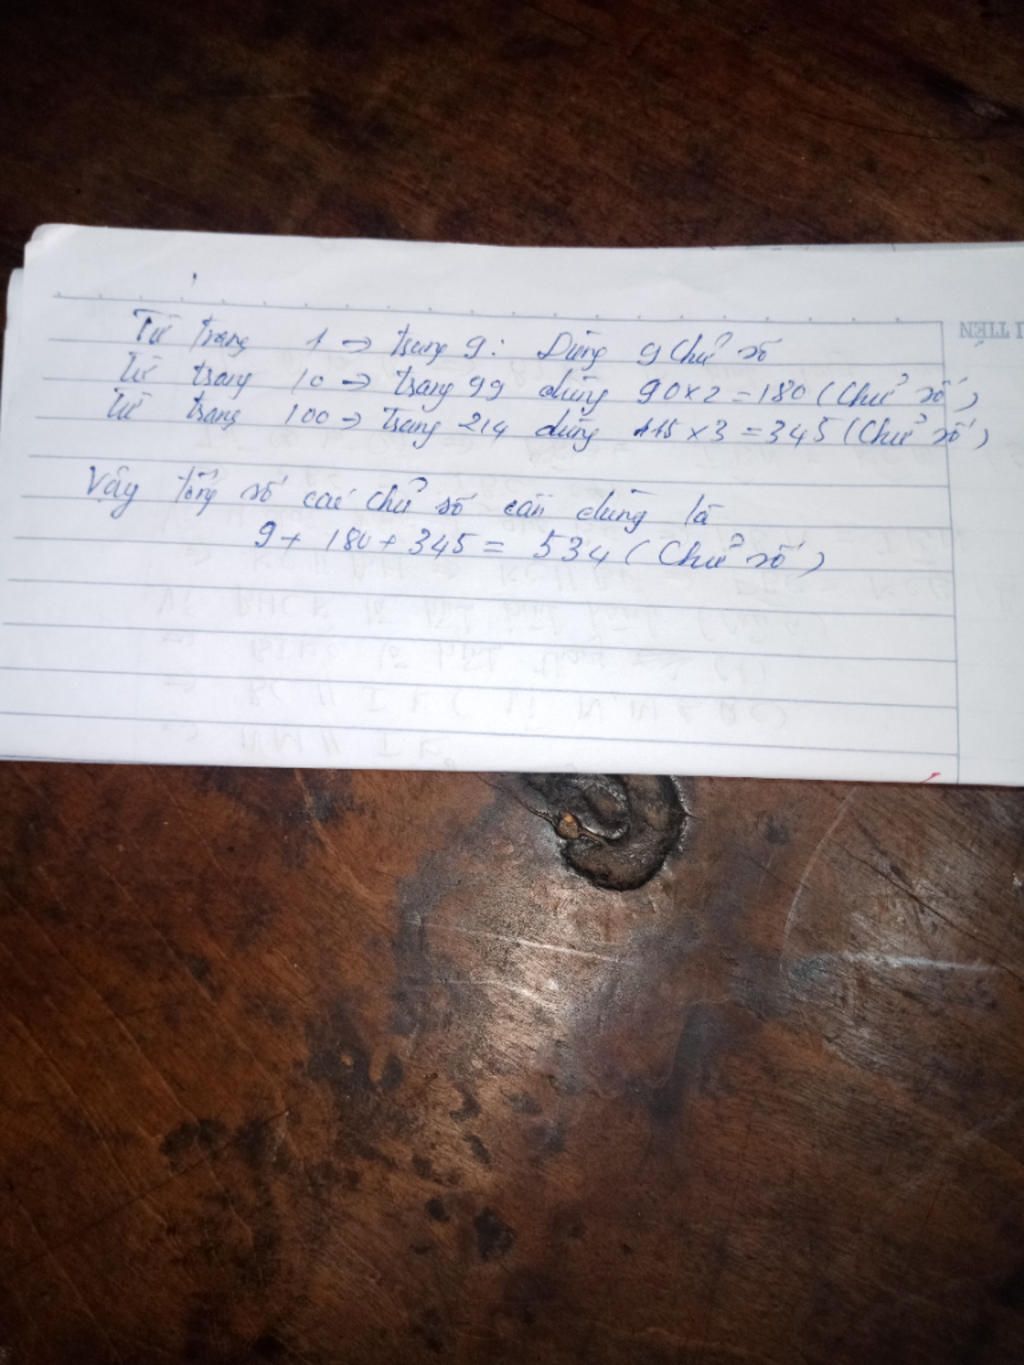 Từ trang 1 → trang 9: Dùng 9 chữ số
Từ trang 10 → trang 99 dùng 90 x 2 = 180 (chữ số)
Từ trang 100 → trang 214 dùng 115 x 3 = 345 (chữ số)
Vậy tổng số các chữ số cần dùng là
9 + 180 + 345 = 534 (chữ số)